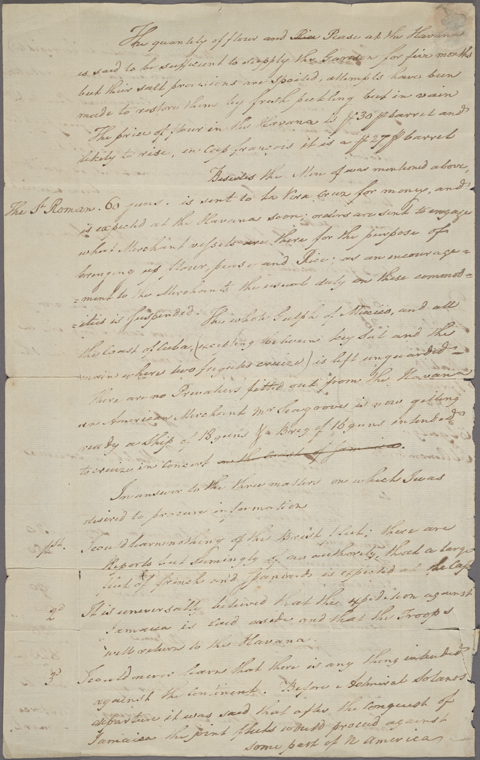 The quantity of flour and Rice Pease at the Havana
is said to be sufficient to supply the Garrison for five months
but their salt provisions are spoiled, attempts have been
made to restore them by fresh pickling but in vain
The price of flour in the Havana is 30 barrel and
likely to rise, in Cap françois it is a 27 barrel
Besides the Men of war mentioned above,
The St Roman. 60 guns. is sent to La Vera Cruz for money, and
is expected at the Havana soon; orders are sent to engage
what Merchant vessels are there for the purpose of
bringing up flour, pease and Rice; as an encourage=
=ment to the Merchants the usual duty on these commod=
=ities is suspended. The whole Gulph of Mexico, and all
the Coast of Cuba, (excepting between key Sal and the
main where two frigates cruize) is left unguarded
There are no Privateers fitted out from the Havana
an American Merchant Mr Seagrove is now getting
ready a Ship of 18 guns & a Brig of 16 guns intended
to cruize in concert on the Coast of Jamaica.
In answer to the three matters on which I was
desired to procure information
1st. I could learn nothing of the Brest fleet; there are
Reports but seemingly of no authority, that a large
fleet of french and Spaniards is expected at the Cap
2d It is universally believed that the expedition against
Jamaica is laid aside and that the Troops
will return to the Havana.
3d I could never learn that there is any thing intended
against the Continent. Before Admiral Solano's
departure it was said that after the Conquest of
Jamaica the joint fleets would proceed against
some part of N America